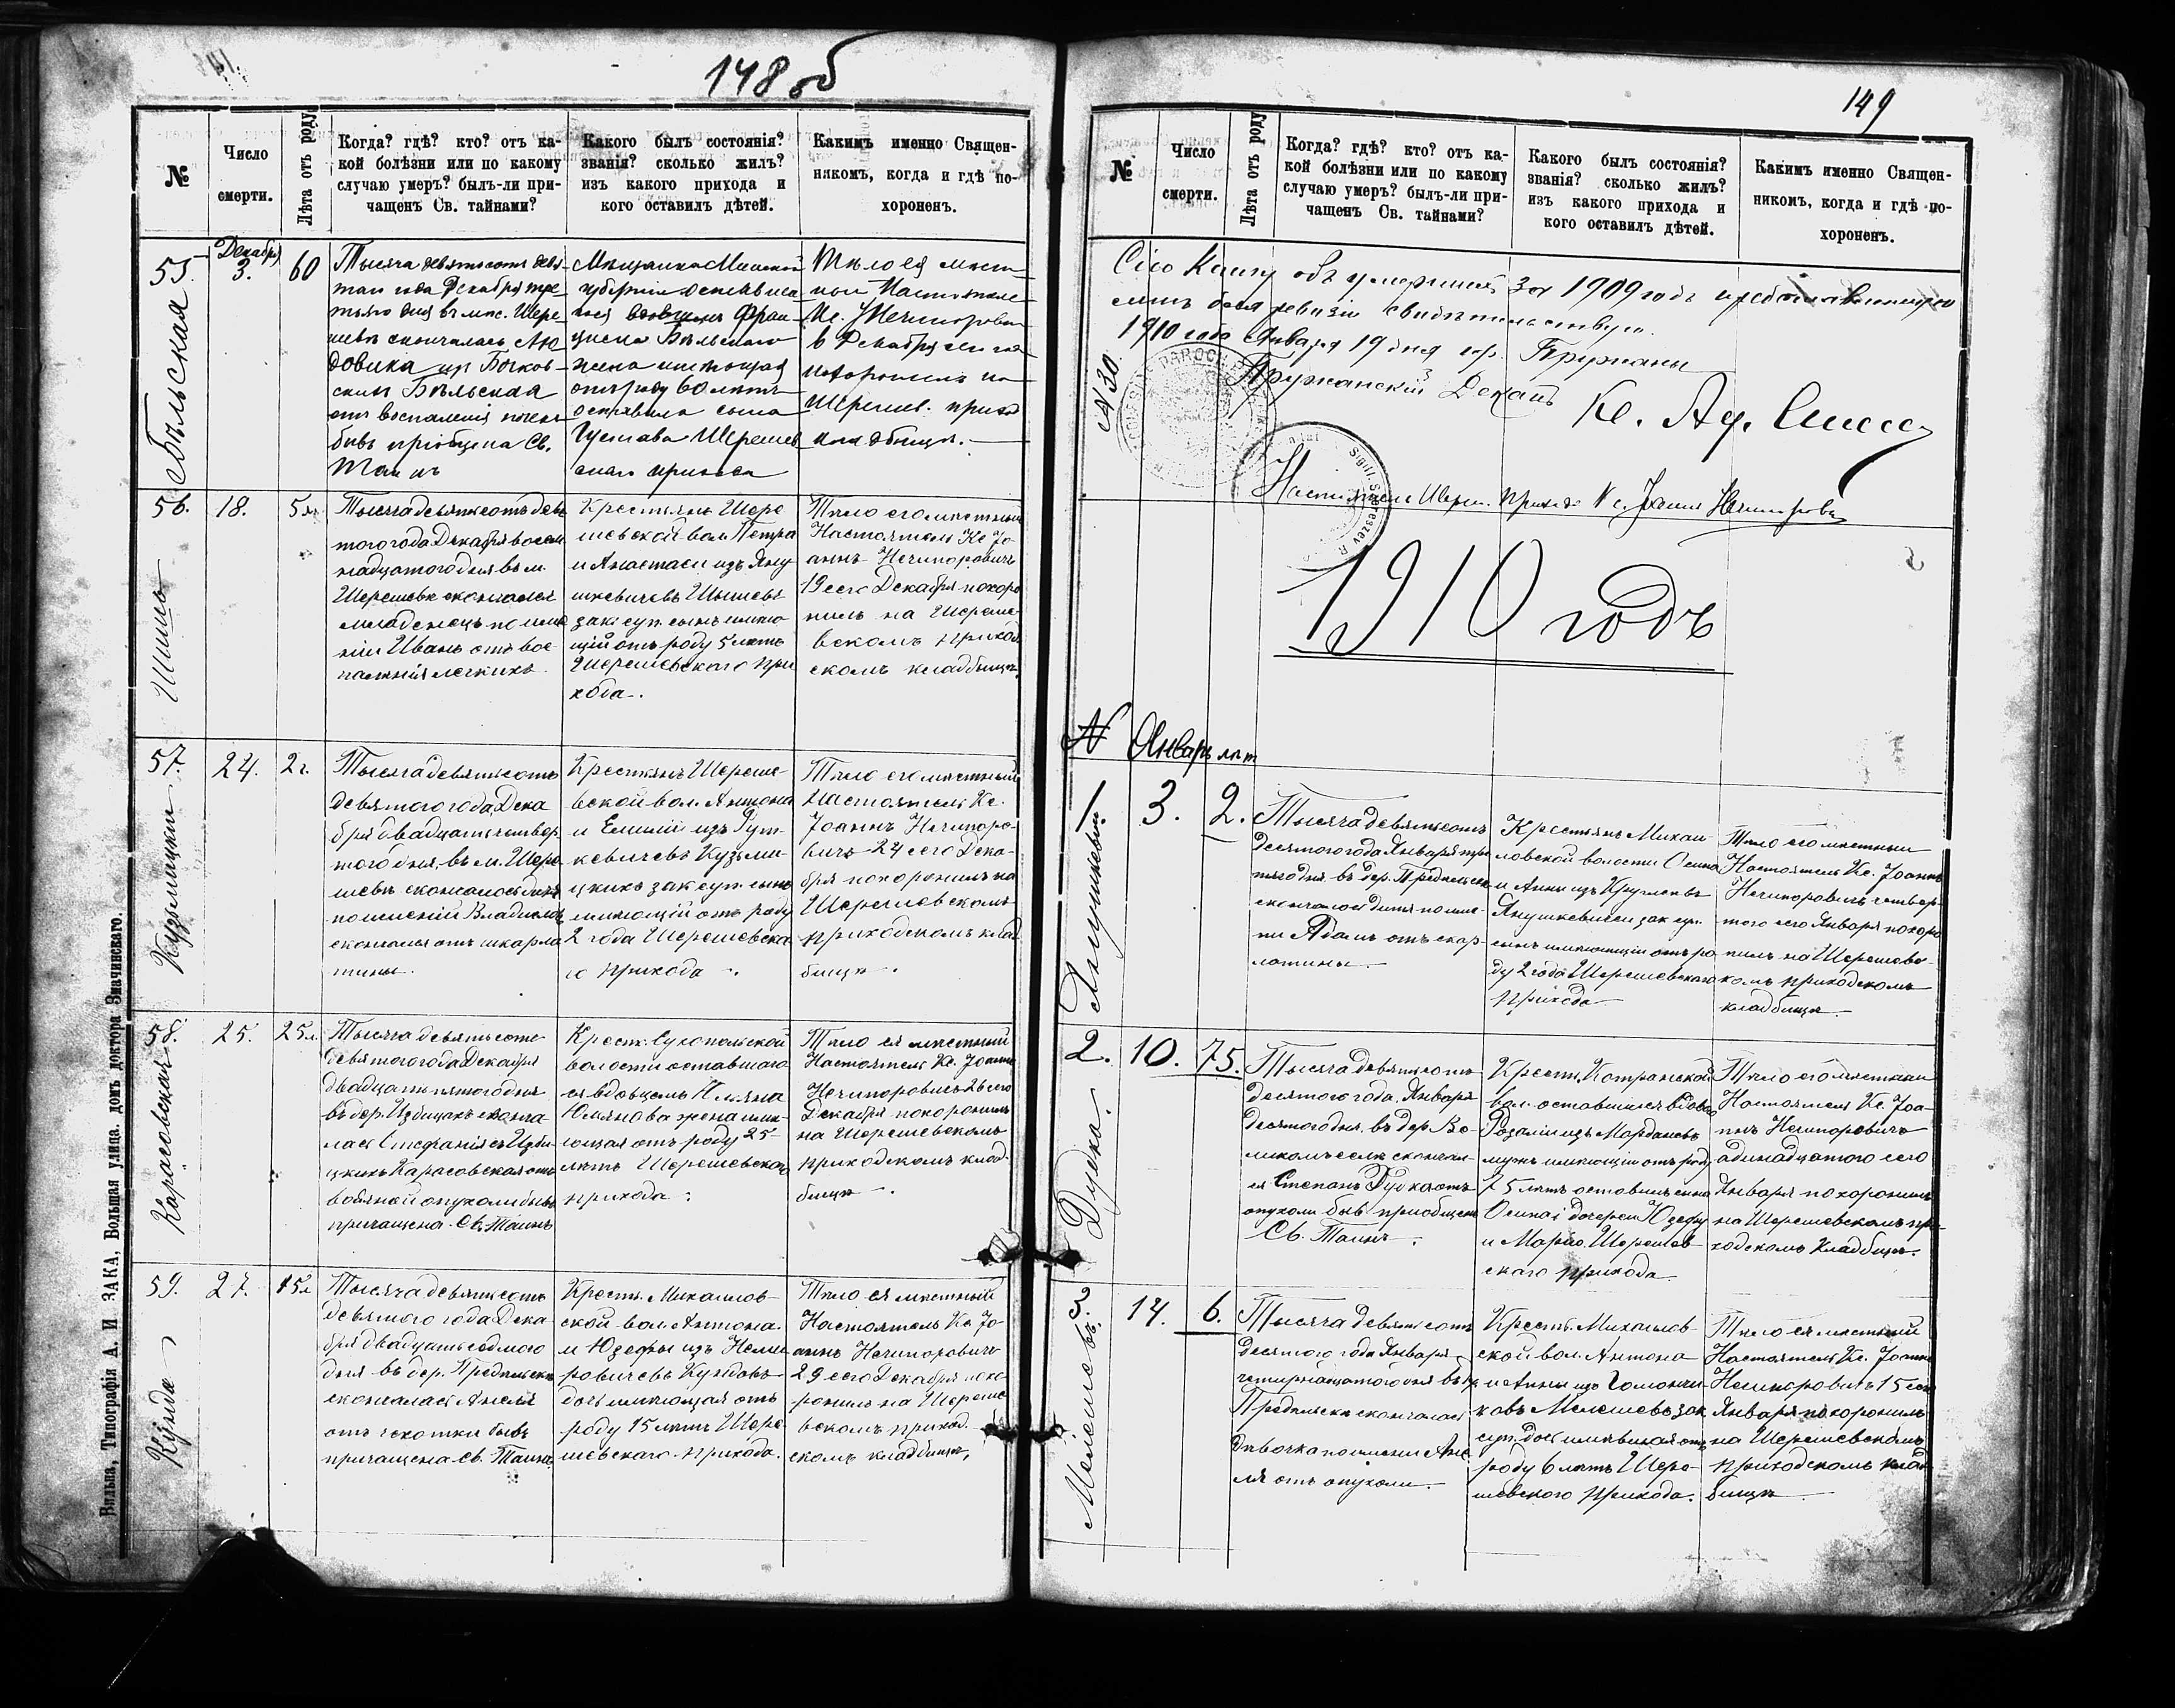 148 об
№
Число
смерти.
Лѣта отъ роду
Когда? гдѣ? кто? отъ ка-
кой болѣзни или по какому
случаю умеръ? былъ-ли при-
чащенъ Св. тайнами?
Какого былъ состоянія?
званія? сколько жилъ?
изъ какого прихода и
кого оставилъ дѣтей.
Какимъ именно Священ-
никомъ, когда и гдѣ по-
хороненъ.
55.
Бѣльская
Декабря
3.
60
Тысяча девятьсотъ девя-
таго года Декабря тре-
тьяго дня въ мѣс. Шере-
шевѣ скончалась Лю-
довика изъ
Бѣльская
отъ воспаленія
бывъ пріобщена Св.
Таинъ
Мѣщанка Минской
губерніи оставшаго-
ся вдовцемъ Фран-
циска Бѣльскаго
жена имѣющая
отъ роду 60 лѣтъ
оставила сына
Густава Шерешев
скаго прихода
Тѣло ея мѣст-
ный Настоятель
Кс. Нечипорович
6 Декабря сего
похоронилъ на
Шерешев. прихо
кладбищѣ.
56.
Шишъ
18.
5 л.
Тысяча девятьсотъ девя
таго года Декабря восем
надцатого дня въ м.
Шерешевѣ скончался
младенецъ по име
ніи Иванъ отъ вос-
паленія легкихъ
Крестьянъ Шере
шевской вол. Петра
и Анастасіи изъ Яну
шкевичевъ Шишевъ
зак. суп. сынъ имѣю
щій отъ роду 5 лѣтъ
Шерешевскаго при
хода.
Тѣло его мѣстный
Настоятель Кс. Іо
аннъ Нечипоровичъ
19 сего Декабря похоро
нилъ на Шереше-
вскомъ приход
скомъ кладбищѣ.
57.
Кузьмицкій
24.
2 г.
Тысяча девятьсотъ
девятого года Дека
бря двадцать четвер
того дня, въ м. Шере
шевѣ скончалось дитя
по именій Владиславъ
скончался отъ шкарла
тины.
Крестьянъ Шереше-
вской вол. Антона
и Емиліи изъ Рут-
кевичевъ Кузьми-
цкихъ зак. суп. сынъ
имѣющій отъ роду
2 года Шерешевска
го прихода.
Тѣло его мѣстный
Настоятель Кс.
Іоаннъ Нечипоро-
вичъ 24 сего Дека-
бря похоронилъ на
Шерешевскомъ
приходскомъ клад
бищѣ.
58.
Карасовская
25.
25 л.
Тысяча девятьсотъ
девятого года Декабря
двадцать пятого дня
въ дер. Избицахъ сконча
лась Стефанія съ Изби
цкихъ Карасовская отъ
водяной опухоли бывъ
причащена Св. Таинъ
Крест. Сухопольской
волости оставшаго
ся вдовцемъ Юліяна
Юлянова жена имѣ-
ющая отъ роду 25
лѣтъ Шерешевскаго
прихода.
Тѣло ея мѣстный
Настоятель Кс. Іоаннъ
Нечипоровичъ 26 сего
Декабря похоронилъ
на Шерешевскомъ
приходскомъ клад-
бищѣ.
59.
Кунда
27.
15 л
Тысяча девятьсотъ
девятого года Дека
бря двадцать седьмого
дня въ дер. Предѣльскъ
скончалась Анеля
отъ чахотки бывъ
причащена Св. Таинъ.
Крест. Михайлов-
ской вол. Антона
и Юзефы изъ Неми
ровичевъ Кундовъ
дочь имѣющая отъ
роду 15 лѣтъ Шере
шевскаго прихода.
Тѣло ея мѣстный
Настоятель Кс. Іо
аннъ Нечипоровичъ
29 сего Декабря похо
ронилъ на Шереше
вскомъ приход-
скомъ кладбищѣ.
Вильна, Типографія А. И ЗАКА, Большая улица. домъ доктора Значинскаго.
149
№
Число
смерти.
Лѣта отъ роду
Когда? гдѣ? кто? отъ ка-
кой болѣзни или по какому
случаю умеръ? былъ-ли при-
чащенъ Св. тайнами?
Какого былъ состоянія?
званія? сколько жилъ?
изъ какого прихода и
кого оставилъ дѣтей.
Какимъ именно Священ-
никомъ, когда и гдѣ по-
хороненъ.
Сію Книгу объ умершихъ за 1909 годъ
для ревизіи свидѣтельствую.
1910 года Января 19 дня гор. Пружаны
№ 30.
Пружанскій Деканъ
Кс. Ад.
Настоятель Шереш. прихода Кс. Іоаннъ Нечипорович
1910 годъ
№ Январь лѣт
1.
Янушкевичъ
3.
2.
Тысяча девятьсотъ
десятого года Января тре
тяго дня въ дер. Предѣльскѣ
скончалось дитя по име-
ни Адамъ отъ скар-
латины.
Крестьянъ Михай-
ловской волости Осипа
и Анны изъ
Янушкевичей зак. суп.
сынъ имѣющій отъ ро
ду 2 года Шерешевскаго
прихода
Тѣло его мѣстный
Настоятель Кс. Іоаннъ
Нечипоровичъ четвер-
того сего Января похоро
нилъ на Шерешевс-
комъ приходскомъ
кладбищѣ.
2.
Дудка.
10.
75.
Тысяча девятьсотъ
десятого года, Января
десятого дня въ дер. Во-
скончал-
ся Степанъ Дудка отъ
опухоли бывъ пріобщенъ
Св. Таинъ.
Крест. Котранской
вол. оставшейся вдовою
Розаліи изъ Мордасевъ
мужъ имѣющій отъ роду
75 лѣтъ оставилъ сына
Осипа і дочерей Юзефу
и Марію. Шерешев
скаго прихода.
Тѣло его мѣстный
Настоятель Кс. Іоа-
ннъ Нечипоровичъ
адинадцатого сего
Января похоронилъ
на Шерешевскомъ при-
ходскомъ Кладбищѣ.
3.
Мелешевъ.
14.
6.
Тысяча девятьсотъ
десятого года Января
четырнадцатого дня въ д.
Предѣльскѣ скончалась
дѣвочка по имени Ане
ля отъ опухоли.
Крест. Михайлов-
ской вол. Антона
и Анны изъ
Мелешевъ зак
суп. дочь имѣвшая отъ
роду 6 лѣтъ Шере-
шевского прихода.
Тѣло ея мѣстный
Настоятель Кс. Іоаннъ
Нечипоровичъ 15 сего
Января похоронилъ
на Шерешевскомъ
приходскомъ клад
бищѣ.